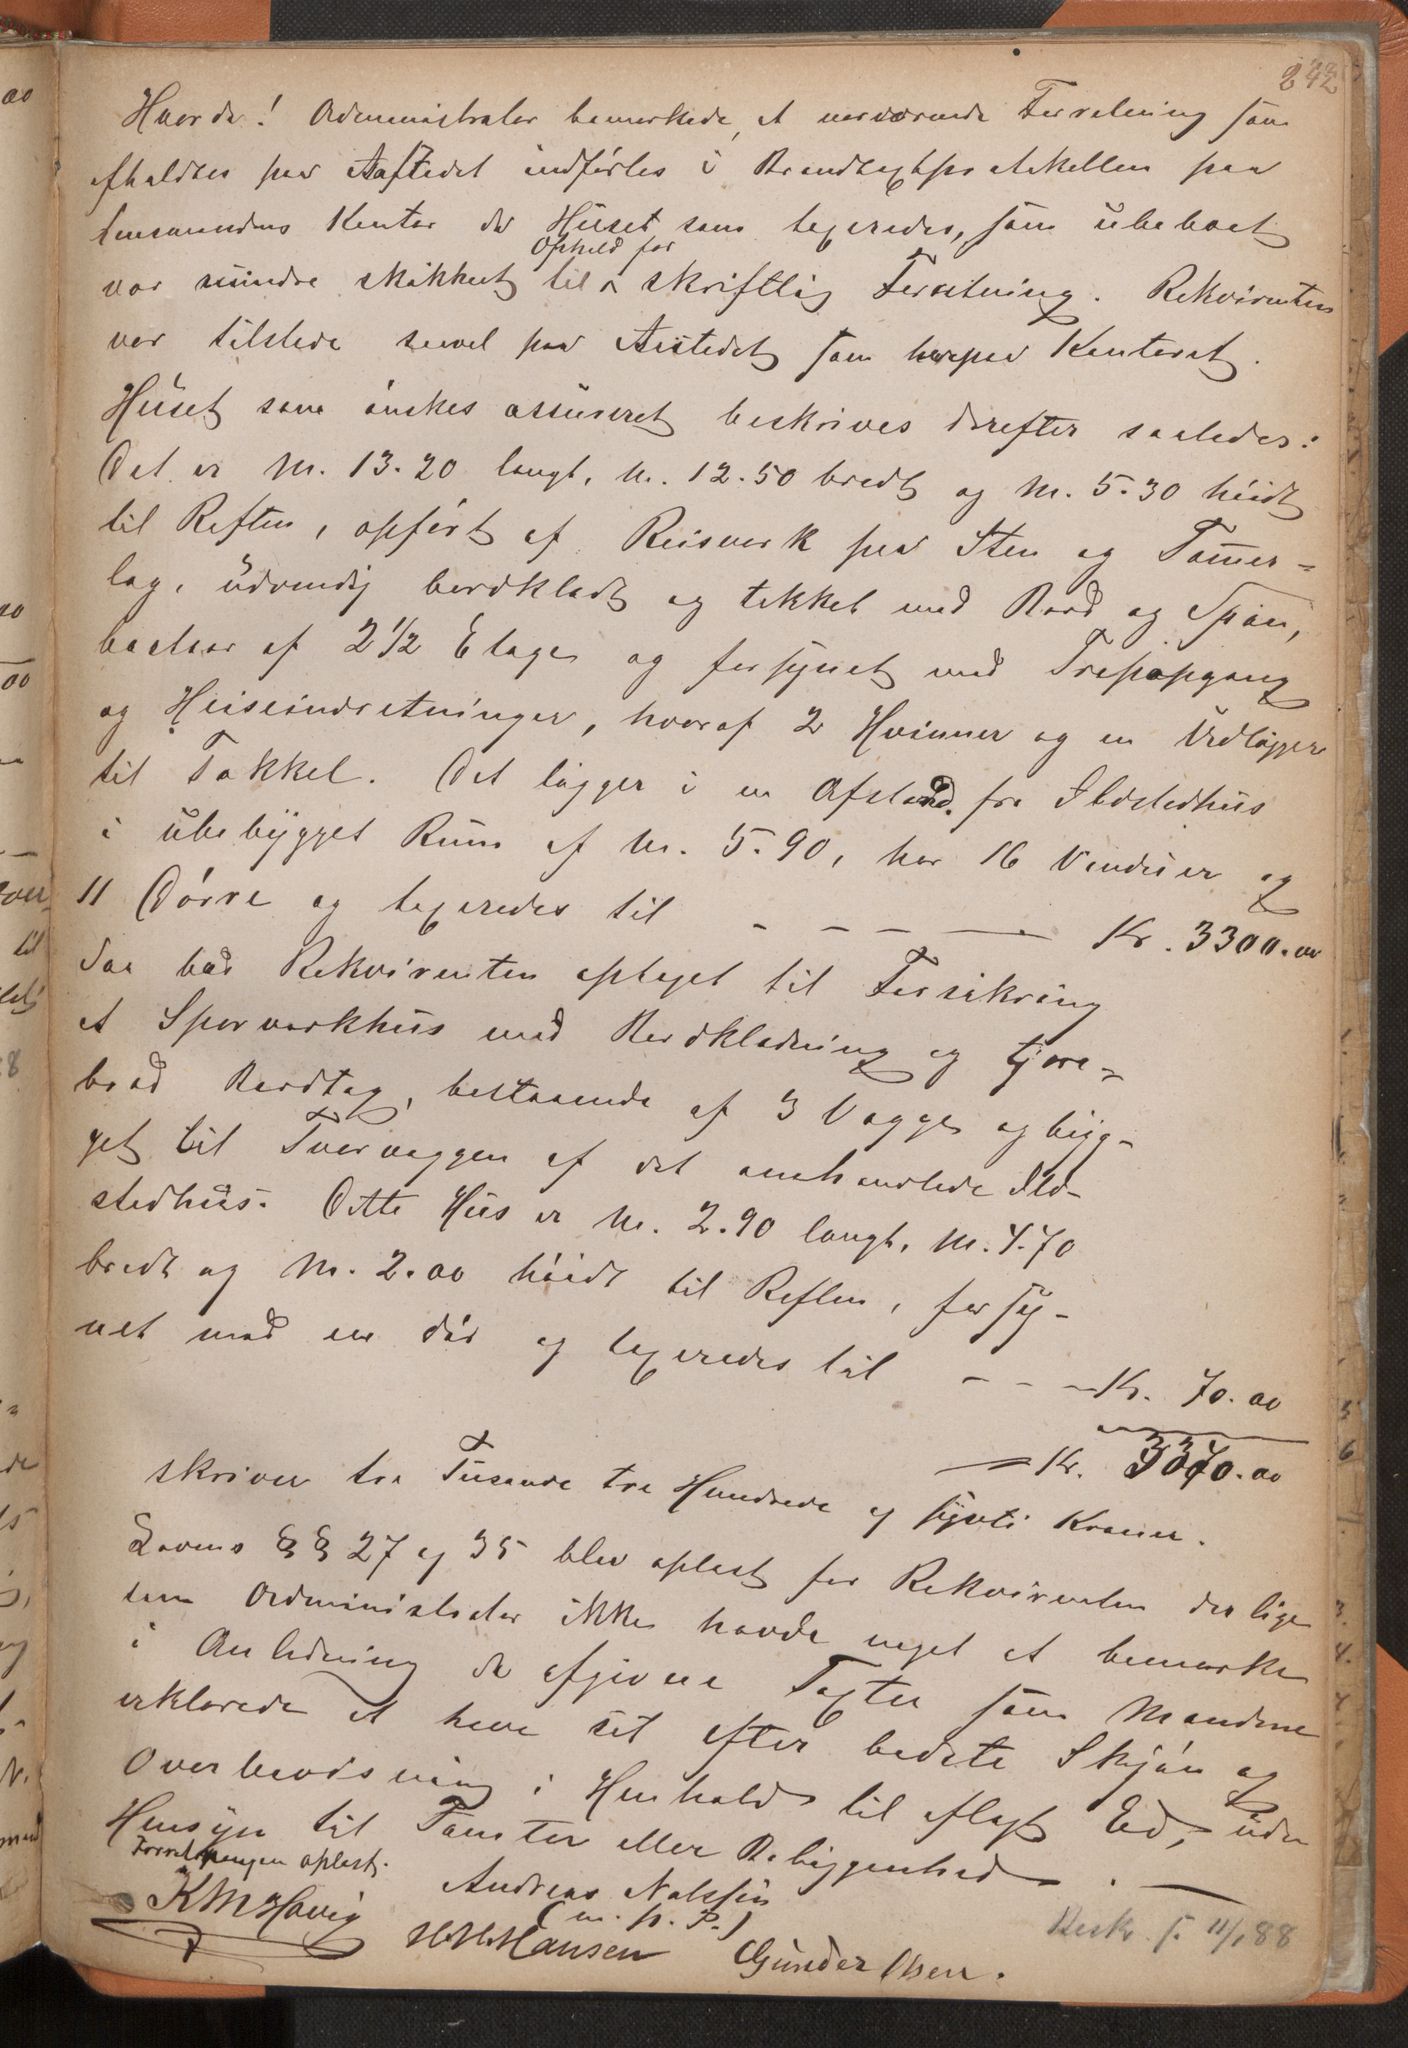 242
Hvorda! Administrator bemerkede, at nerværende Forretning som
afholdtes paa Aastedet indførtes i Brandtaxtprotokollen paa
Lensmandens Kontor da Huset som taxeredes, som ubeboet
Ophold for
var mindre skikket til skriftlig Forretning. Rekvirenten
var tilstede saavel paa Aastedet som herpaa Kontoret.
Huset som ønskes assureret beskrives derefter saaledes:
Det er M. 13.20 langt, M. 12.50 bredt og M. 5.30 høidt
til Raften, opført af Reisverk paa Sten og Tømmer-
lag, udvendig bordklædt og tækket med Bord og Spøn,
bestaar af 2 1/2 Etage og forsynet med Trapopgang
og Heiseindretninger, hvoraf 2 Hvinner og en Udligger
til Takkel. Det ligger i en Afstand fra Ildstedhus
i ubebygget Rum af M. 5.90, har 16 Vinduer og
11 Dørre og taxeredes til - - - - Kr. 3300.00
Saa bad Rekvirenten optaget til Forsikring
et Sporverkhus med Bordklædning og tjære-
bræd Bordtag, bestaaende af 3 Vægge og byg-
get til Tvervæggen af det omhandlede Ild-
stedhus. Dette Hus er M. 2.90 langt, M. 4.70
bredt og M. 2.00 høidt til Raften, forsy-
net med en Dør og taxeredes til - - - Kr. 70.00
= Kr. 3370.00
skriver tre Tusende tre Hundrede og sytti Kroner.
Lovens §§ 27 og 35 blev oplæst for Rekvirenten der lige
som Administrator ikke havde noget at bemærke
i Anledning de afgivne Taxter som Mændene
erklærede at have sat efter bedste Skjøn og
Overbevisning i Henhold til aflagt Ed, uden
Hensyn til Tomter eller Beliggenhed. —
Forretningen oplæst.
KMHavig Andreas Nilssen
(m. p. P.)
H. M. Hansen Gunder Olsen.
Besk. s. 11/1 88